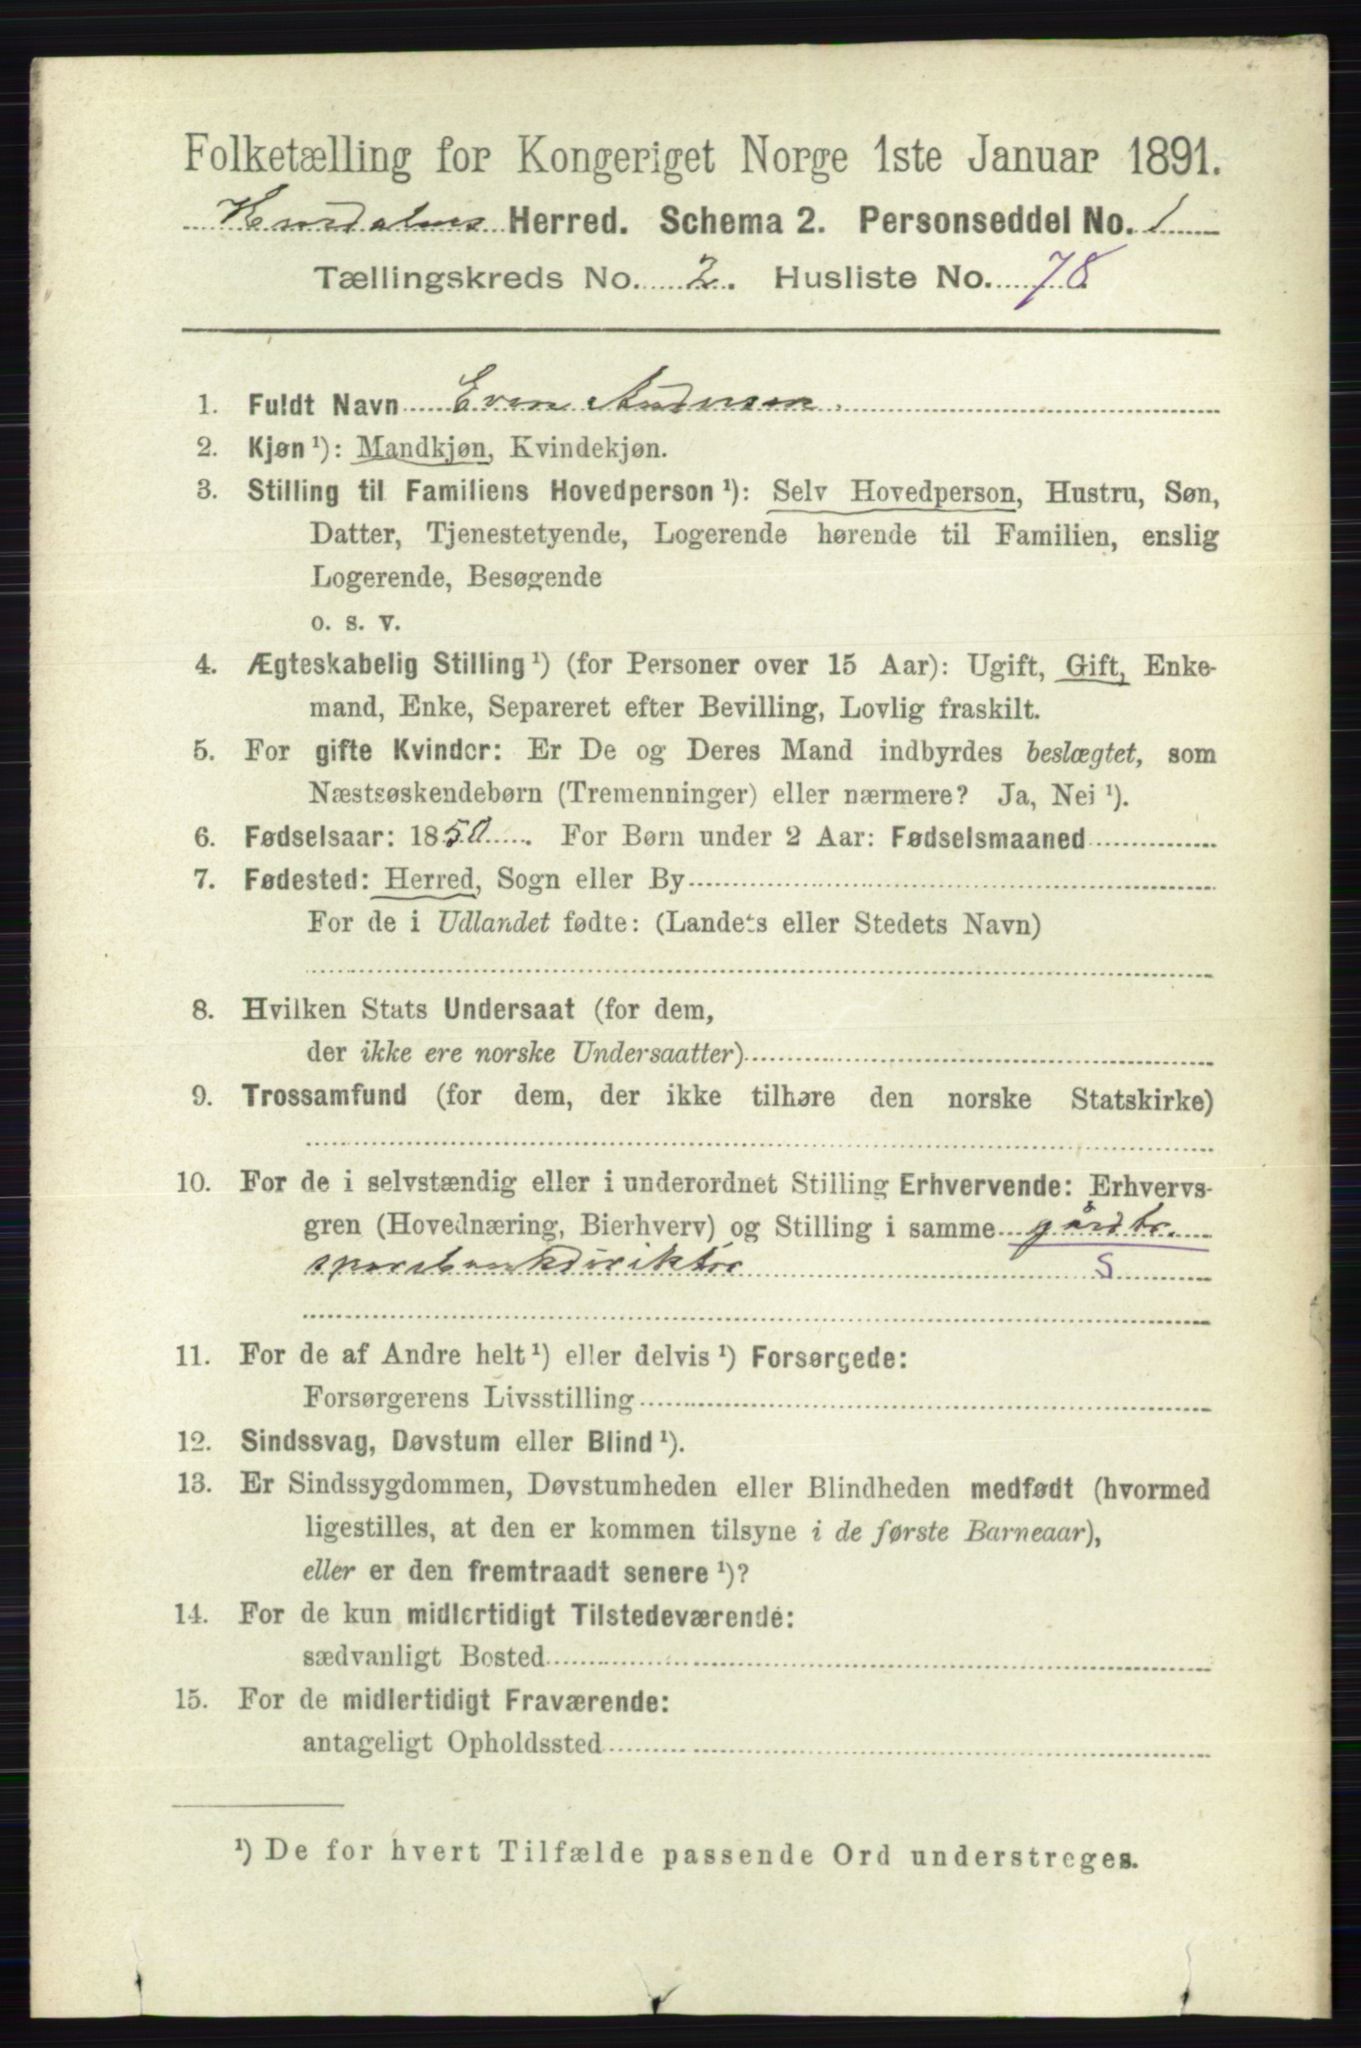 Folketælling for Kongeriget Norge 1ste Januar 1891.
Hurdalens Herred. Schema 2. Personseddel No. 1
Tællingskreds No. 2. Husliste No. 78
1. Fuldt Navn Even Andersen.
2. Kjøn¹): Mandkjøn, Kvindekjøn.
3. Stilling til Familiens Hovedperson¹): Selv Hovedperson, Hustru, Søn,
Datter, Tjenestetyende, Logerende hørende til Familien, enslig
Logerende, Besøgende
o. s. v.
4. Ægteskabelig Stilling¹) (for Personer over 15 Aar): Ugift, Gift, Enke-
mand, Enke, Separeret efter Bevilling, Lovlig fraskilt.
5. For gifte Kvinder: Er De og Deres Mand indbyrdes beslægtet, som
Næstsøskendebørn (Tremenninger) eller nærmere? Ja, Nei¹).
6. Fødselsaar: 1850. For Børn under 2 Aar: Fødselsmaaned
7. Fødested: Herred, Sogn eller By
For de i Udlandet fødte: (Landets eller Stedets Navn)
8. Hvilken Stats Undersaat (for dem,
der ikke ere norske Undersaatter)
9. Trossamfund (for dem, der ikke tilhøre den norske Statskirke)
10. For de i selvstændig eller i underordnet Stilling Erhvervende: Erhvervs-
gren (Hovednæring, Bierhverv) og Stilling i samme gårdbr.
sparebankdirektør S
11. For de af Andre helt¹) eller delvis¹) Forsørgede:
Forsørgerens Livsstilling
12. Sindssvag, Døvstum eller Blind¹).
13. Er Sindssygdommen, Døvstumheden eller Blindheden medfødt (hvormed
ligestilles, at den er kommen tilsyne i de første Barneaar),
eller er den fremtraadt senere¹)?
14. For de kun midlertidigt Tilstedeværende:
sædvanligt Bosted
15. For de midlertidigt Fraværende:
antageligt Opholdssted
¹) De for hvert Tilfælde passende Ord understreges.